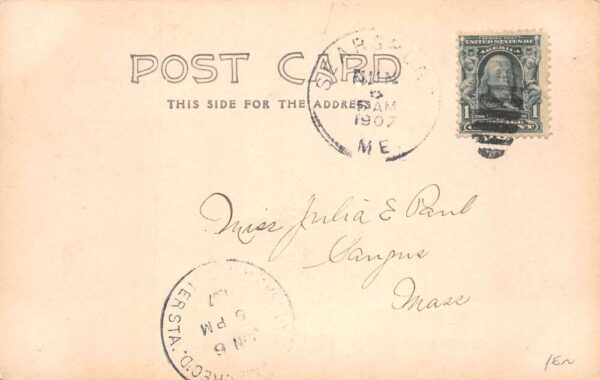 POST CARD
THIS SIDE FOR THE ADDRESS
SEARSPORT
JUN
6
AM
1907
ME.
UNITED STATES OF
AMERICA
1 1
Miss Julia E Paul
Mass
REC'D.
TER STA.
6
5 PM
07